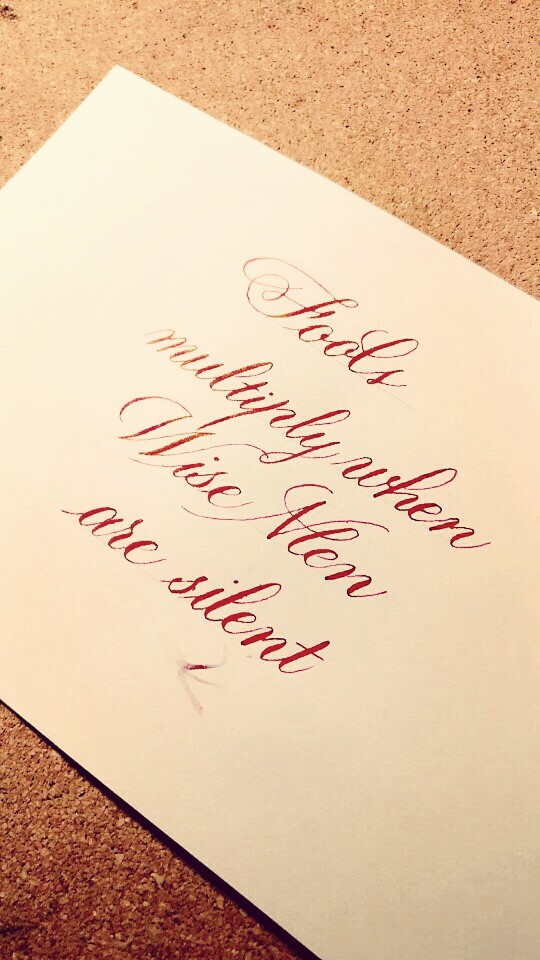 Fools
multiply when
Wise Men
are silent